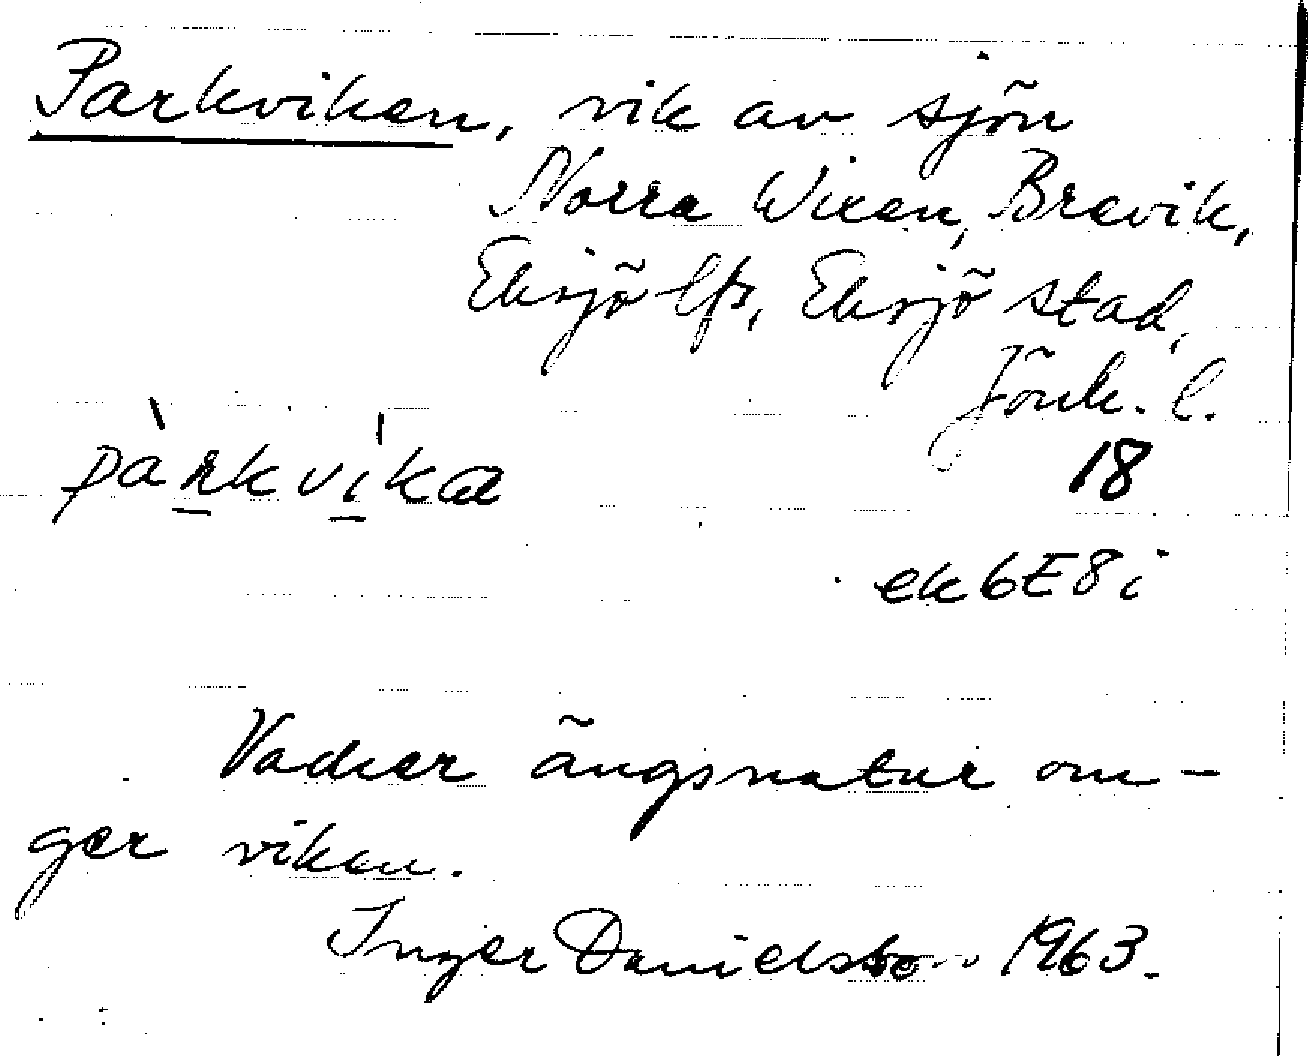 Parkviken, vik av sjön
Norra Wixen, Bravik,
Eksjö lfs, Eksjö stad,
Jönk. l.
pàrkvíka
18
ek6E8i
Vacker ängsnatur om-
ger viken.
Inger Danielsson 1963.